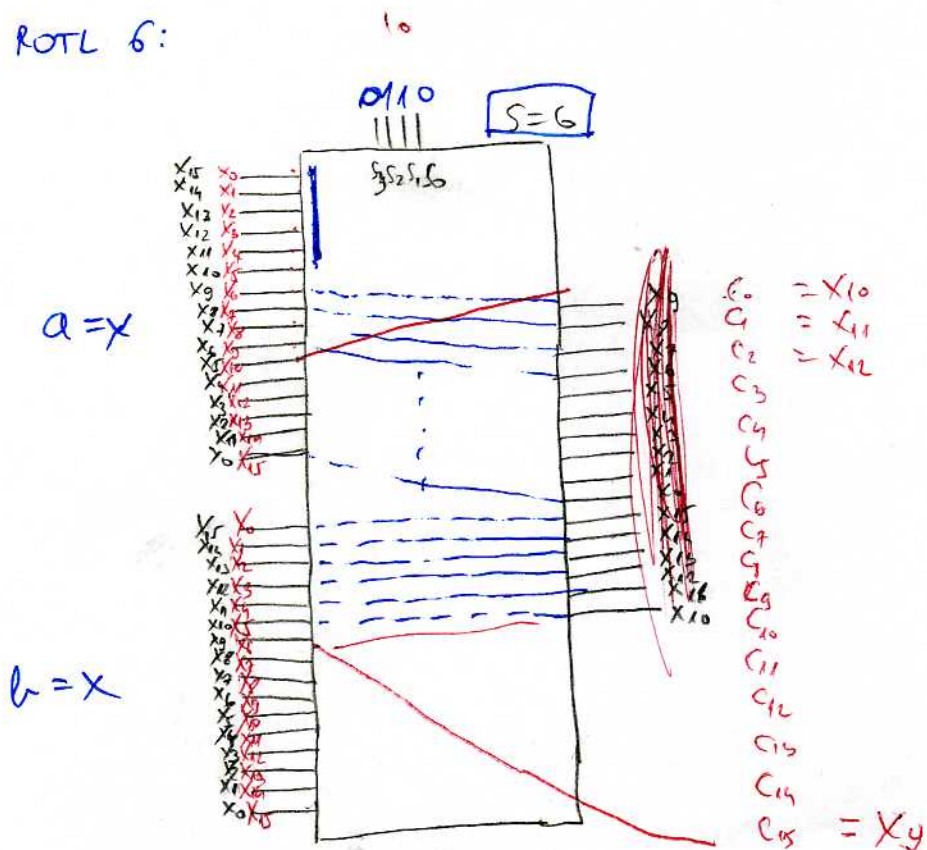 ROTL 6:
10
0110
S=6
S3 S2 S1 S0
X15 X0
X14 X1
X13 X2
X12 X3
X11 X4
X10 X5
X9 X6
X8 X7
X7 X8
X6 X9
X5 X10
X4 X11
X3 X12
X2 X13
X1 X14
X0 X15
a = X
X15 X0
X14 X1
X13 X2
X12 X3
X11 X4
X10 X5
X9 X6
X8 X7
X7 X8
X6 X9
X5 X10
X4 X11
X3 X12
X2 X13
X1 X14
X0 X15
b = X
X9
X10
C0 = X10
C1 = X11
C2 = X12
C3
C4
C5
C6
C7
C8
C9
C10
C11
C12
C13
C14
C15 = X9